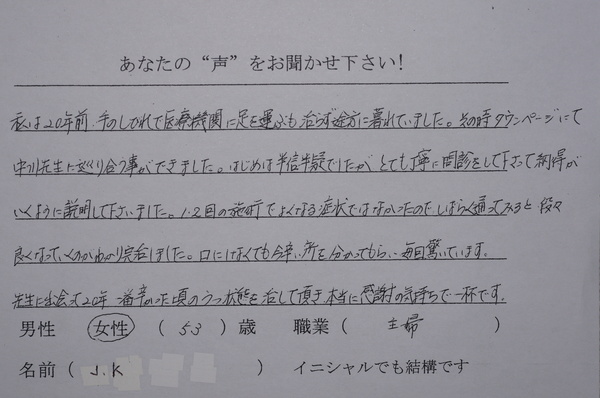 あなたの“声”をお聞かせ下さい!
私は20年前、手のしびれで医療機関に足を運ぶも治らず途方に暮れていました。その時タウンページにて
中川先生に巡り合う事ができました。はじめは半信半疑でしたがとても丁寧に問診をして下さって納得が
いくように説明して下さいました。1.2回の施術でよくなる症状ではなかったのでしばらく通ってみると段々
良くなっていくのがわかり完治しました。口にしなくても今辛い所を分かってもらい毎回驚いています。
先生に出会って20年 一番辛かった頃のうつ状態を治して頂き本当に感謝の気持ちで一杯です。
男性 女性 ( 53 ) 歳 職業 ( 主婦 )
名前 ( J.K ) イニシャルでも結構です